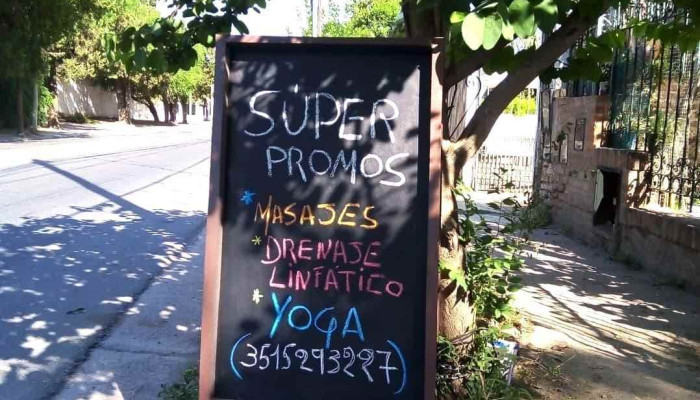 SÚPER
PROMOS
* MASAJES
* DRENAJE
LINFÁTICO
* YOGA
(3515293227)